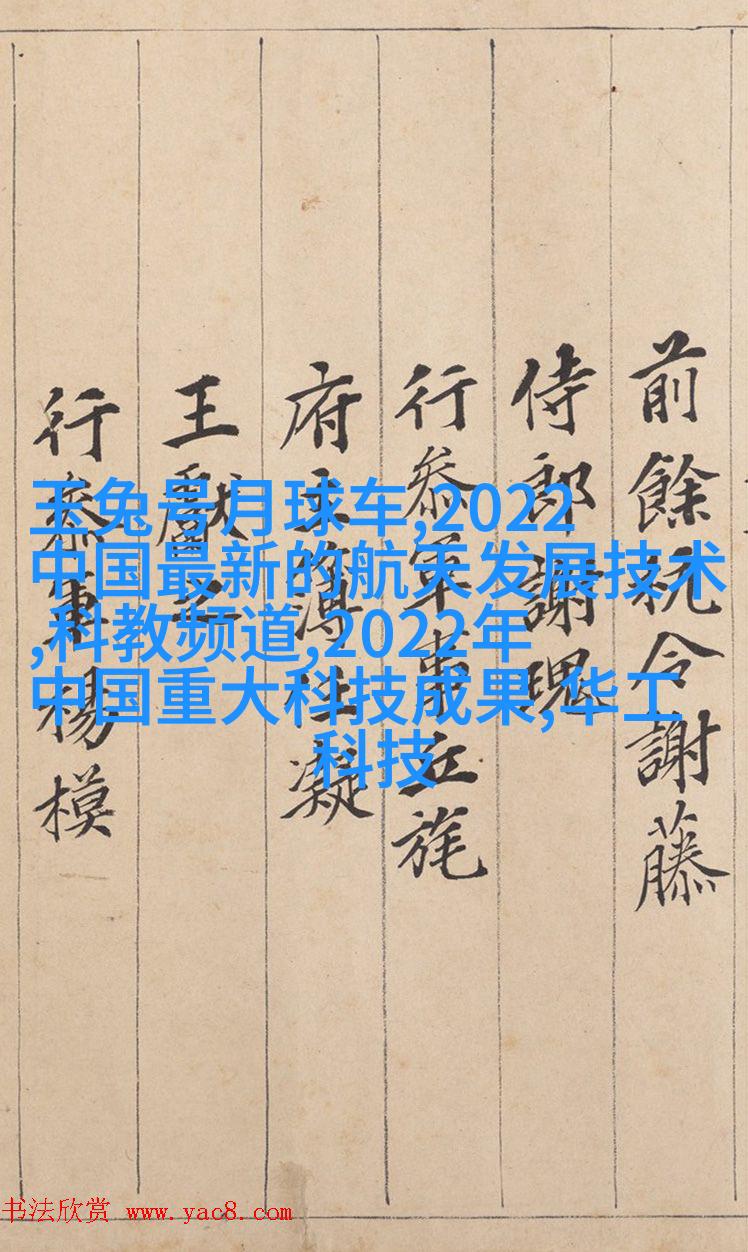 前餘杭令謝藤
侍郎謝瑰
行叅軍事丘旄
府主簿任凝
王獻之
行叅軍楊模
玉兔号月球车,2022
中国最新的航天发展技术
,科教频道,2022年
中国重大科技成果,华工
科技
书法欣赏 www.yac8.com